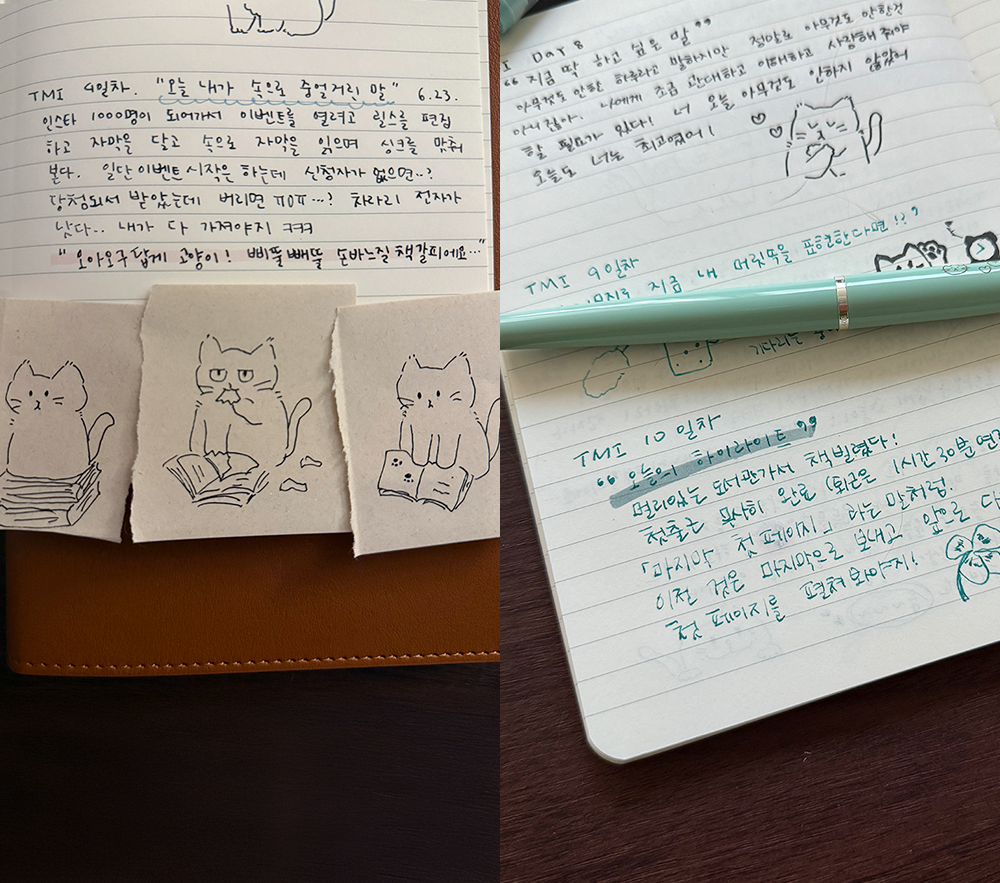 TMI 4일차. "오늘 내가 속으로 중얼거린 말" 6.23.
인스타 1000명이 되어가서 이벤트를 열려고 릴스를 편집
하고 자막을 달고 속으로 자막을 읽으며 싱크를 맞춰
본다. 일단 이벤트 시작은 하는데 신청자가 없으면..?
당첨되서 받았는데 버리면 ㅠ0ㅠ...? 차라리 전자가
낫다.. 내가 다 가져야지 ㅋㅋㅋ
"오아오구답게 고양이! 삐뚤빼뚤 손바느질 책갈피에요..."
I Day 8
"지금 딱 하고 싶은 말"
아무것도 안한 하루라고 말하지만 정말로 아무것도 안한건
아니잖아. 나에게 조금 관대하고 이해하고 사랑해 줘야
할 필요가 있다! 너 오늘 아무것도 안하지 않았어
오늘도 너는 최고였어!
TMI 9일차
지금 내 머릿속을 표현한다면!?"
기다리는
TMI 10일차
"오늘의 하이라이트"
멀리있는 도서관가서 책 빌렸다!
첫출근 무사히 완료 (퇴근은 1시간 30분
「마지막 첫 페이지」 라는 말처럼.
이전 것은 마지막으로 보내고 앞으로 다
첫 페이지를 펼쳐 봐야지!